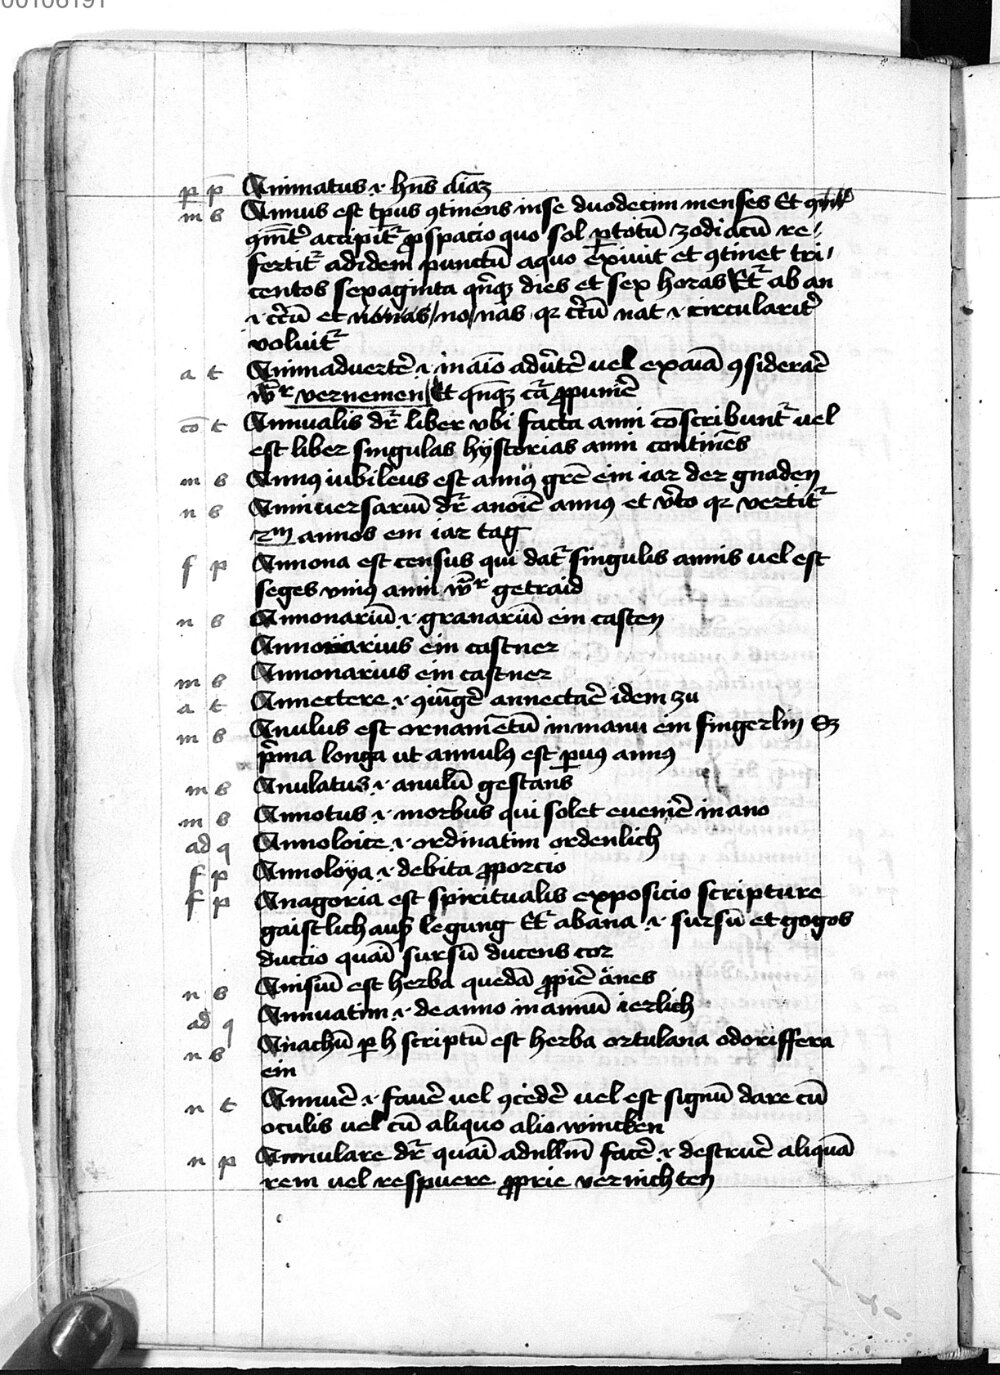 00106191
p p Animatus .i. hn̄s aīaʒ
m b Annus est tp̄us ꝯtinens in se duodecim menses Et
accipit᷑ ꝓ spacio quo sol ꝑ totū zodiacū re/
fertit᷑ ad idem punctū a quo exiuit et ꝯtinet tri/
centos sexaginta qn̄qꝫ dies et sex horas Et᷑ ab an
.i. cc̄ū et nonas/no/nas qꝛ cc̄ū nat .i. circularit᷑
voluit᷑
a t Animaduertē .i. in aīo adu᷑tē̄ vel ex aīa ꝯsiderāe
ẘr vernemen Et qn̄qꝫ cā ꝓ pūnīē
cō t Annualis dr̄ liber vbi facta anni cōscribunt᷑ vel
est liber singulas hystorias anni continēs
m b Annꝰ iubileus est annꝰ grē̄ ein iar der gnaden
n b Anniuersariū dr̄ annꝰ et v̄to qꝛ vertit᷑
annos ein iar tag
f p Annona est census qui dat᷑ singulis annis vel est
seges vniꝰ anni ẘr getraid
n b Annonariū .i. granariū ein casten
Annonarius ein castner
m b Annonarius ein castner
a t Annectere .i. ꝯiūgē annectāe idem zu
m b Anulus est ornamētū in manu ein fingerlin Sꝫ
p̄ma longa ut annulꝰ est ꝑuꝰ annꝰ
m b Anulatus .i. anulū gestans
m b Annotus .i. morbus qui solet euenīē in ano
ad q Annoloice .i. ordinatim ordenlich
f p Annoloya .i. debita ꝓporcio
f p Anagoria est spiritualis exposicio scripture
gaistlich auß legung Et᷑ ab ana .i. sursū et gogos
ductio quāi sursū ducens cor
n b Anisiū est herba quedā ꝓpiē änes
ad q Annuatim .i. de anno in annū ierlich
n b Anachū ꝑ h scriptū est herba ortulana odoriffera
ein
n t Annuē .i. fauē vel ꝯcedē vel est signū dare cū
oculis vel cū aliquo alio wincken
n p Annulare dr̄ quāi ad nllm̄ facē .i. destruē aliquā
rem vel respuere ꝓprie vernichten